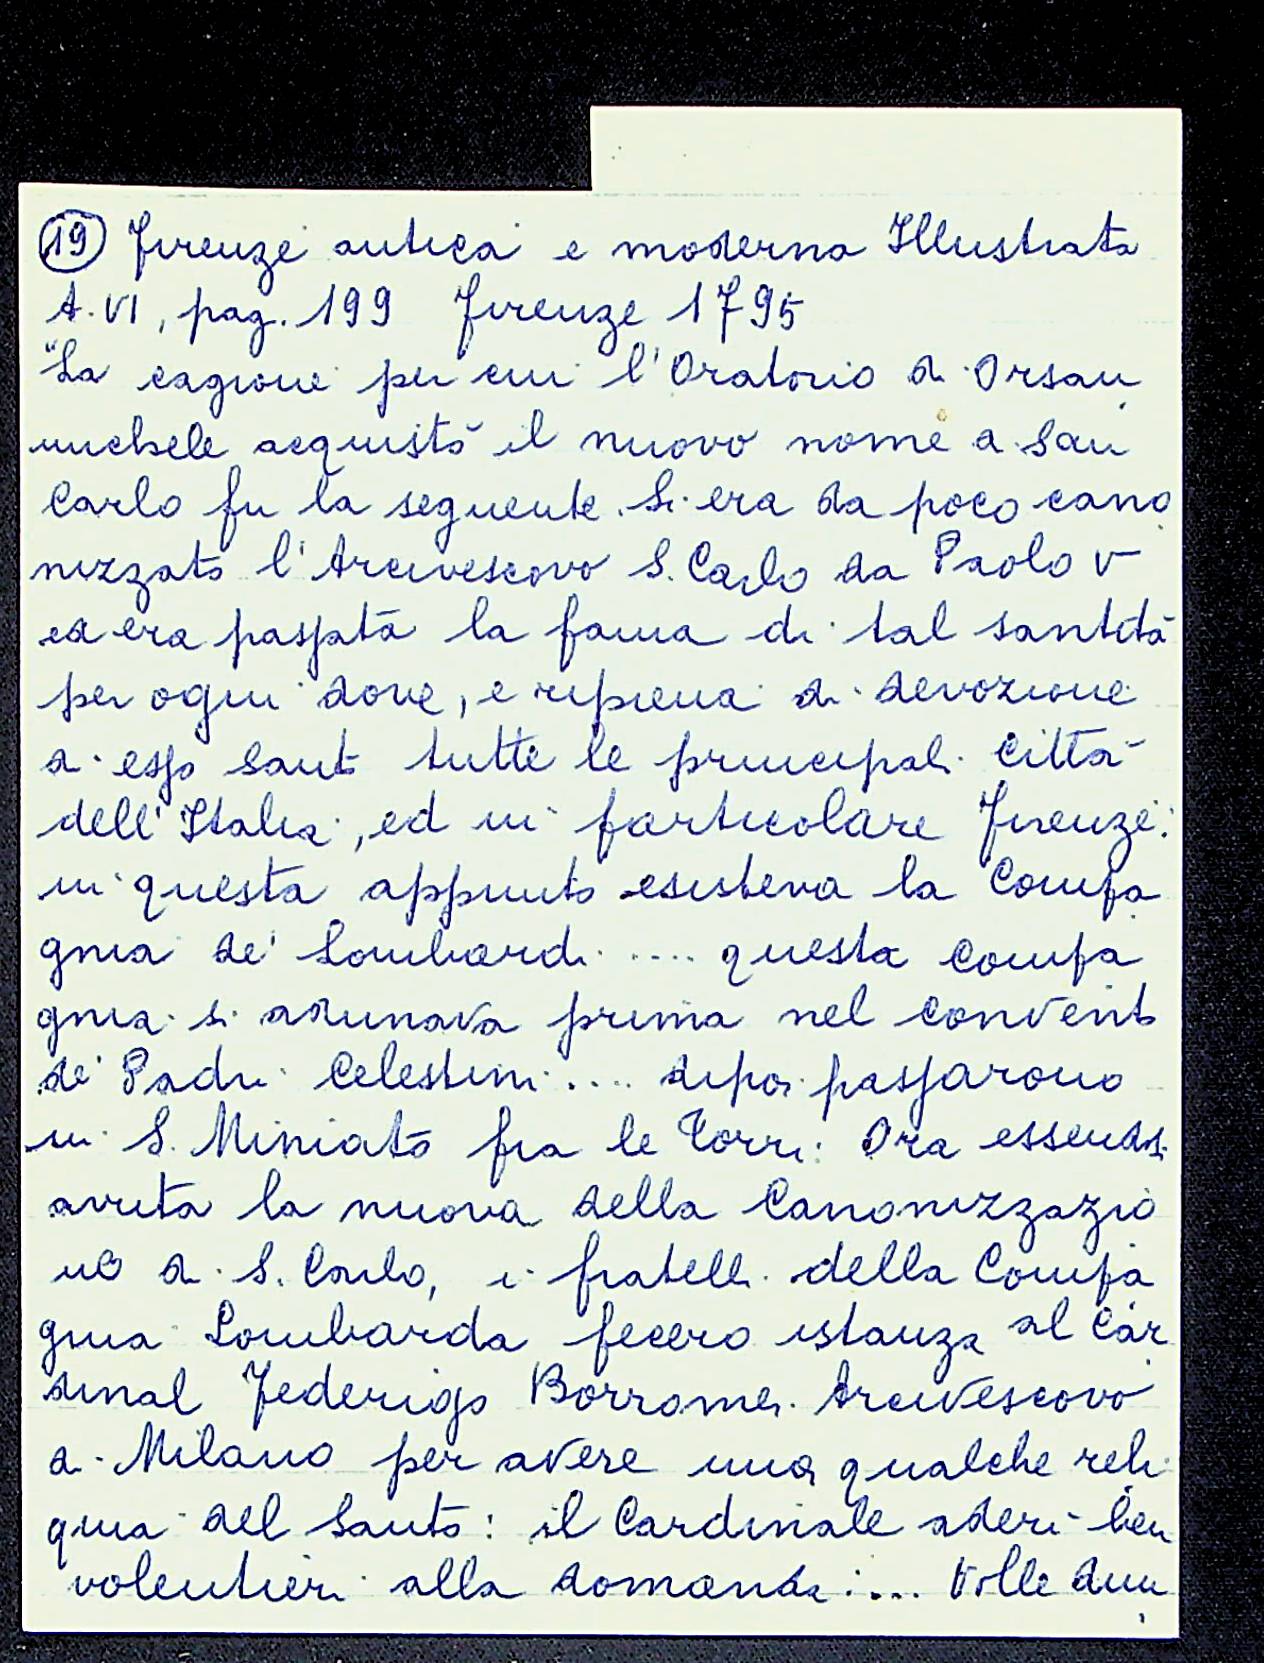 19 Firenze antica e moderna Illustrata
A. VI, pag. 199 Firenze 1795
"La cagione per cui l'Oratorio di Orsan
michele acquistò il nuovo nome di San
Carlo fu la seguente. Si era da poco cano
nizzato l'Arcivescovo S. Carlo da Paolo V
ed era passata la fama di tal santità
per ogni dove, e ripiena di devozione
a esso Santo tutte le principali città
dell'Italia, ed in particolare Firenze:
in questa appunto esisteva la Compa
gnia de' Lombardi .... questa compa
gnia si adunava prima nel convento
de' Padri Celestini .... dipoi passarono
in S. Miniato fra le Torri: Ora essendosi
avuta la nuova della Canonizzazio
ne di S. Carlo, i fratelli della Compa
gnia Lombarda fecero istanza al Car
dinal Federigo Borromei Arcivescovo
di Milano per avere una qualche reli
quia del Santo: il Cardinale aderì ben
volentieri alla domanda: ... Volle dun